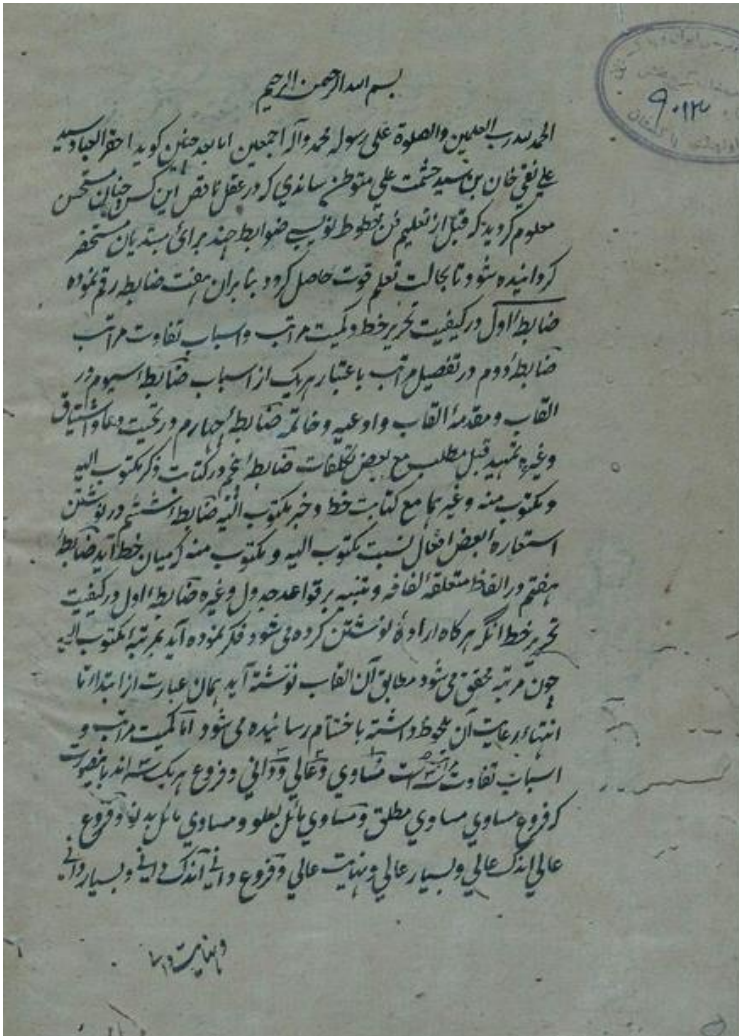 بسم الله الرحمن الرحیم
۹۰۱۳
الحمد لله رب العلمین والصلوة علی رسوله محمد وآله اجمعین اما بعد چنین گوید احقر العباد سید
علی نقی خان بن سید حشمت علی متوطن ساندی که در عقل ناقص این کس چنان مستحسن
معلوم کردید که قبل از تعلیم فن خطوط نویسی ضوابط چند برای مبتدیان مستحضر
کردانیده شود تا بحالت تعلم قوت حاصل کرود بنابران هفت ضابطه رقم نموده
ضابطهٔ اول در کیفیت تحریر خط و کمیت مراتب و اسباب تفاوت مراتب
ضابطهٔ دوم در تفصیل مراتب باعتبار هریک از اسباب ضابطهٔ سیوم در
القاب و مقدمهٔ القاب و اوعیه و خاتمه ضابطهٔ چهارم در تحیت و دعا و اشتیاق
وغیره تمهید قبل مطلب مع بعض تکلفات ضابطهٔ پنجم در کتابت ذکر مکتوب الیه
و مکتوب منه وغیرهما مع کتابت خط و خبر مکتوب الیه ضابطهٔ ششم در نوشتن
استعارهٔ بعض افعال نسبت مکتوب الیه و مکتوب منه که میان خط آید ضابطهٔ
هفتم در الفاظ متعلقهٔ لفافه و تنبیه بر قواعد جدول وغیره ضابطهٔ اول در کیفیت
تحریر خط انکه هرکاه ارادهٔ نوشتن کرده می شود فکر نموده آید بمرتبهٔ مکتوب الیه
چون مرتبه محقق می شود مطابق آن القاب نوشته آید همان عبارت از ابتدا تا
انتها رعایت آن ملحوظ داشته باختتام رسانیده می شود اما کمیت مراتب و
اسباب تفاوت مراتب مساوی و عالی و دانی و فروع هریک سه اند باینصورت
که فروع مساوی مساوی مطلق و مساوی مائل بعلو و مساوی مائل بدنو و فروع
عالی اندک عالی و بسیار عالی و نهایت عالی و فروع دانی اندک دانی و بسیار دانی
و نهایت دانی